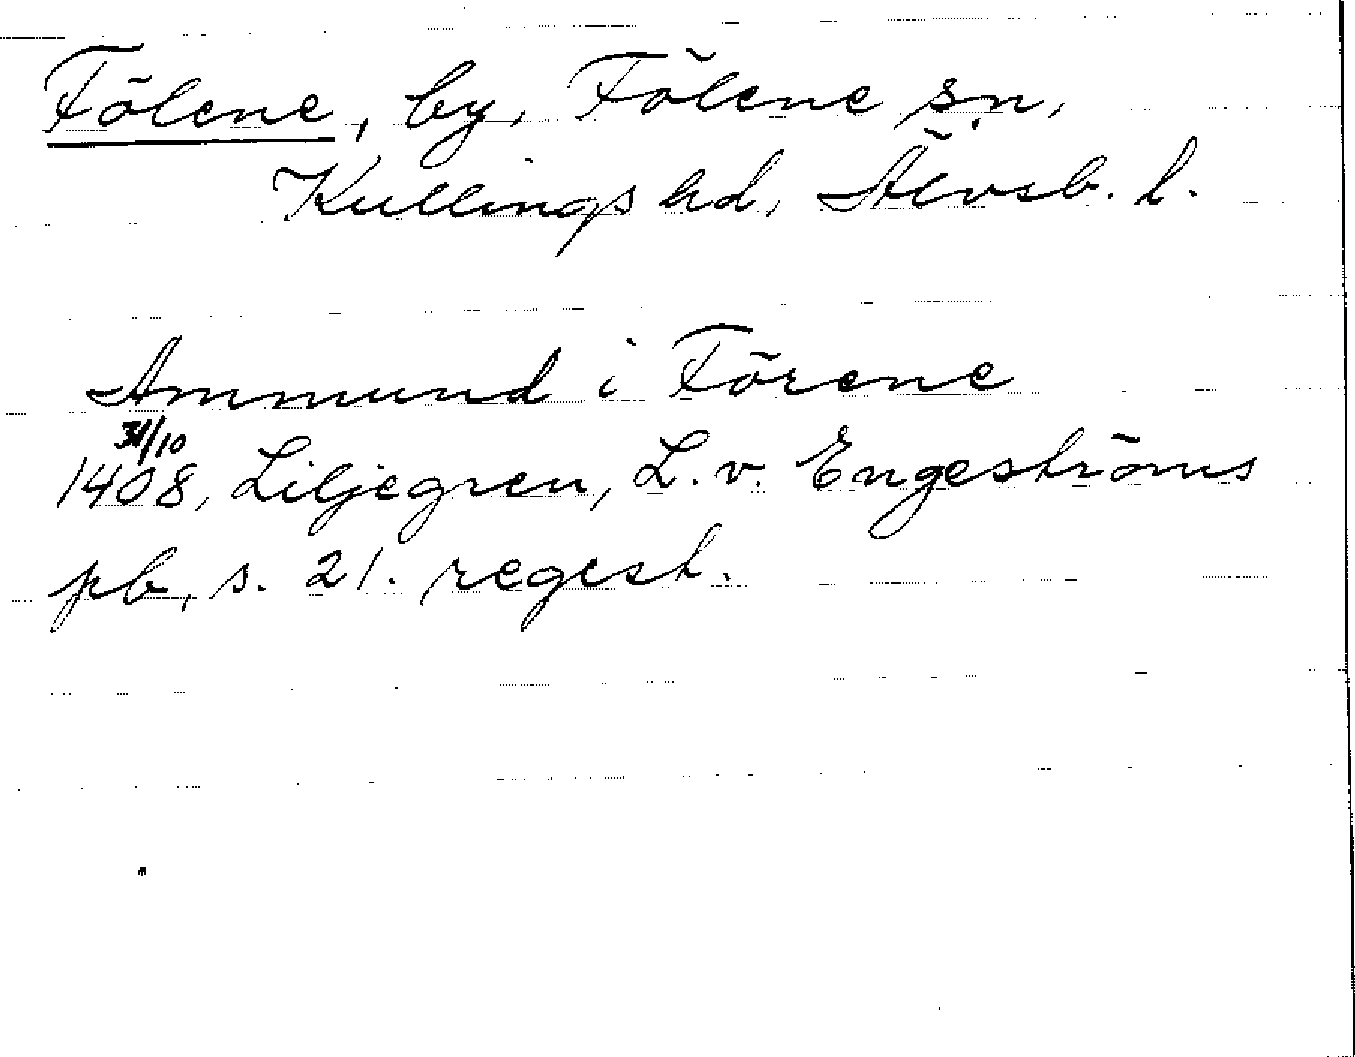 Fölene, by, Fölene sn,
Kullings hd, Älvsb. l.
Ammund i Förene
31/10
1408, Liljegren, L. v. Engeströms
pb, s. 21. regest.